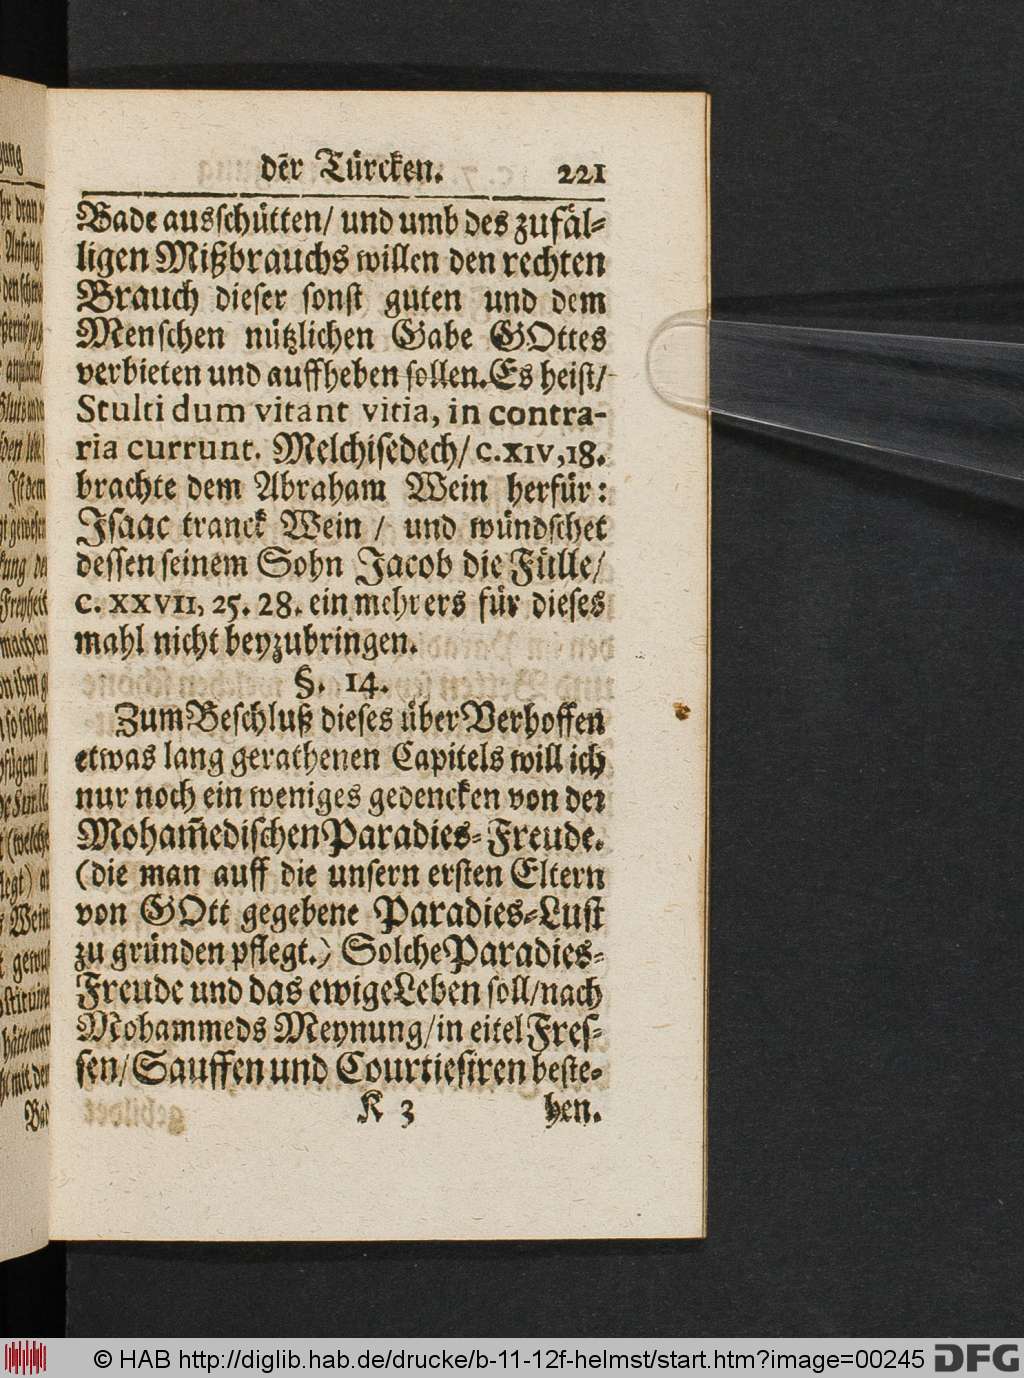 der Türcken. 221
Bade ausschütten/ und umb des zufäl-
ligen Mißbrauchs willen den rechten
Brauch dieser sonst guten und dem
Menschen nützlichen Gabe GOttes
verbieten und auffheben sollen. Es heist/
Stulti dum vitant vitia, in contra-
ria currunt. Melchisedech/ c. XIV, 18.
brachte dem Abraham Wein herfür:
Isaac tranck Wein / und wündschet
dessen seinem Sohn Jacob die Fülle/
c. XXVII, 25. 28. ein mehrers für dieses
mahl nicht beyzubringen.
§. 14.
Zum Beschluß dieses über Verhoffen
etwas lang gerathenen Capitels will ich
nur noch ein weniges gedencken von der
Moham̃edischen Paradies-Freude.
(die man auff die unsern ersten Eltern
von GOtt gegebene Paradies-Lust
zu gründen pflegt.) Solche Paradies-
Freude und das ewige Leben soll/ nach
Mohammeds Meynung/ in eitel Fres-
sen/ Sauffen und Courtiesiren beste-
K 3 hen.
© HAB http://diglib.hab.de/drucke/b-11-12f-helmst/start.htm?image=00245 DFG